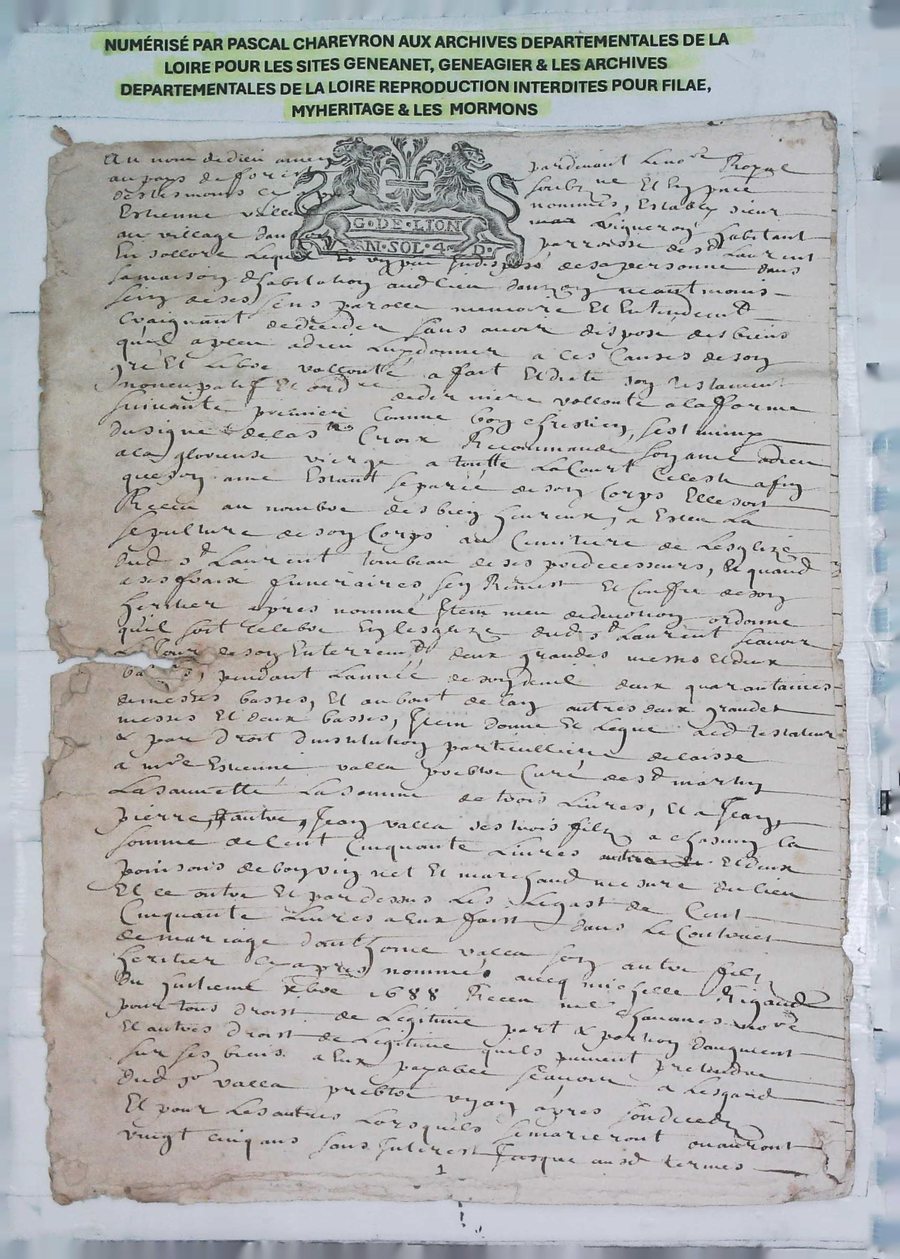 NUMÉRISÉ PAR PASCAL CHAREYRON AUX ARCHIVES DEPARTEMENTALES DE LA
LOIRE POUR LES SITES GENEANET, GENEAGIER & LES ARCHIVES
DEPARTEMENTALES DE LA LOIRE REPRODUCTION INTERDITES POUR FILAE,
MYHERITAGE & LES MORMONS
G·DE·LION
M·SOL·4·D·
Au nom de dieu amen pardevant le no.re Royal
au pays de forest soubz.ne Et En p.nce
des tesmoins nommés, Estably sieur
Estienne valla vigneron habitant
au village parroisse de s.t Laurent
En sollore Lequel indisposé de sa personne dans
sa maison d'habitation aud lieu neantmoins
sein de ses sens parolle memoire Et Entendem.t
Craignant de deceder sans avoir disposé des biens
qu'il a pleu a dieu luy donner a ces Causes de son
gré Et libre vollonté a fait Et dicté son testament
noncupatif Et de derniere vollonté a la forme
suivante premier Comme bon chrestien, s'est muny
du signe de la s.te Croix Recommandé son ame a dieu
a la glorieuse vierge a toutte La Court Celeste afin
que son ame Estant separée de son Corps Elle soit
Receue au nombre des bien heureux, a Esleu La
sepulture de son Corps au Cimitiere de Lesglize
dud s.t Laurent tombeau de ses predecesseurs, Et quand
a ses fraix funeraires sen Remest Et Confie de son
heritier apres nommé Item meu de devotion ordonne
qu'il soit celebré En lesglize dud s.t Laurent scavoir
a Jour de son Enterrem.t deux grandes messes Et deux
basses, pendant Lannée de son deuil deux quarantaines
de messes basses, Et au bout de lan autres deux grandes
messes Et deux basses, Item donne Et Legue Led testateur
& par droit dinstitution particulliere delaisse
a m.re Estienne valla prebtre Curé de s.t martin
La sauveté La somme de trois Livres, Et a Jean,
pierre, Et autre Jean valla ses trois filz a chascung la
somme de Cent Cinquante Livres Et deux
poinsons de bon vin net Et marchand mesure du lieu
Et ce outre Et par dessus Les Legast de Cent
Cinquante Livres a Eux faict dans Le Contract
de mariage valla son autre filz
heritier cy apres nommé avec michelle Rigaud
du huitieme xbre 1688 Receu
pour tous droist de Legitime part & portion daugment
Et autres droist de Legitime quils puiroient pretendre
sur ses biens a Eux payable scavoir a Lesgard
dud s.r valla prebtre un an apres son deceds
Et pour Les autres Lorsquils se marieront ou auront
vingt cinq ans sans Interest Jusque ausd termes
1